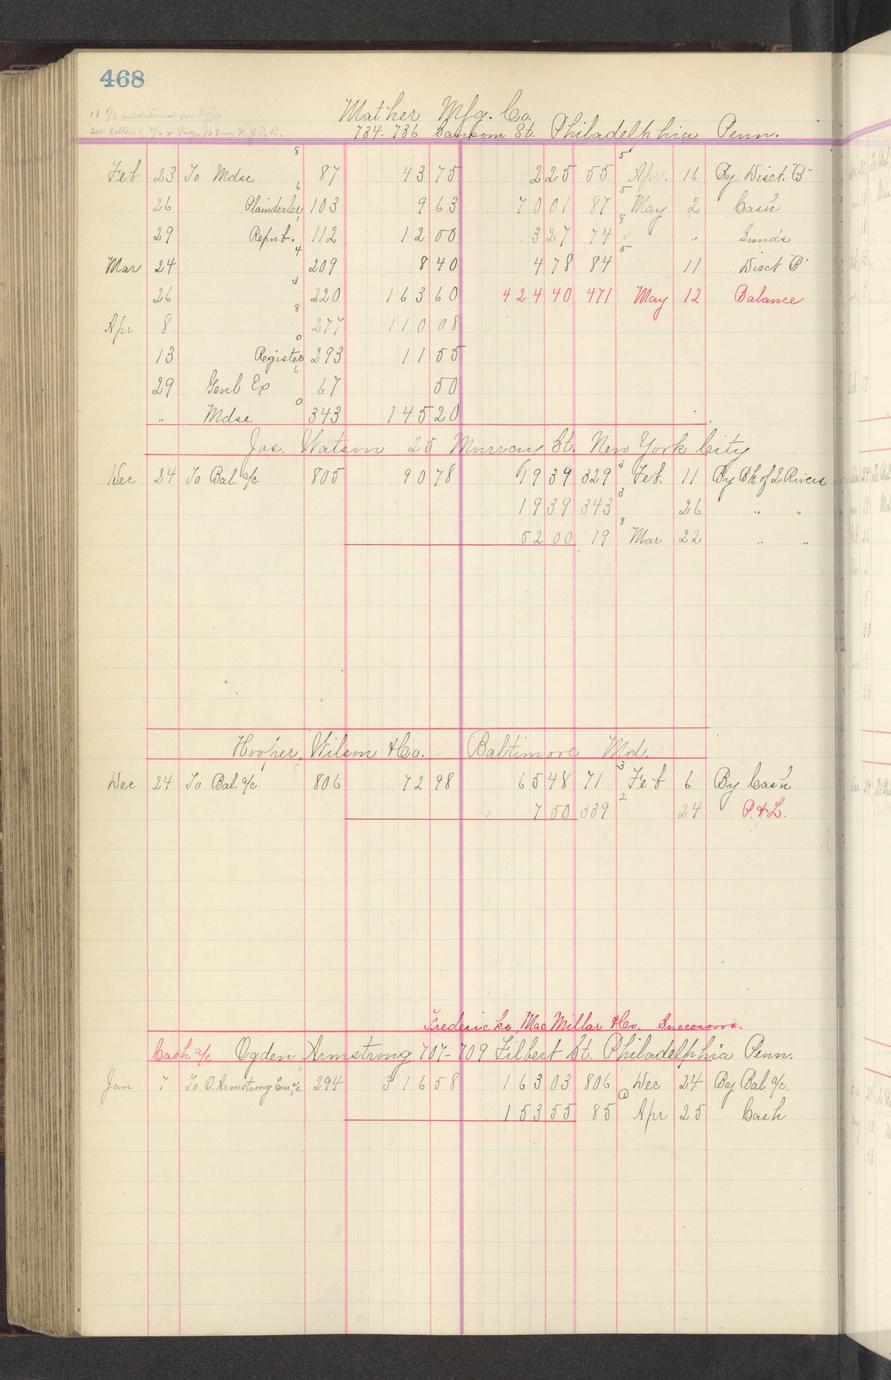 468
Mather Mfg. Co.
734-736 Sansom St. Philadelphia Penn.
Feb 23 To Mdse 8 87 43 75 2 25 55 5 Apr. 16 By Disct. "B"
26 Plaindealer 6 103 9 63 70 01 87 5 May 2 Cash
29 Repub. 1 112 12 00 3 27 74 8 " Sunds
Mar 24 4 209 8 40 4 78 84 5 11 Disct "B"
26 3 220 163 60 424 40 471 May 12 Balance
Apr 8 8 277 110 08
13 Register 0 293 11 55
29 Genl Ex 6 67 50
" Mdse 0 343 145 20
Jas. Watson 25 Murray St. New York City
Dec 24 To Bal a/c 805 90 78 19 39 329 3 Feb. 11 By Bk of 2 Rivers
19 39 343 3 26 " "
52 00 19 8 Mar 22 " "
Hooper, Wilson & Co. Baltimore Md.
Dec 24 To Bal. a/c 1 806 72 98 65 48 71 3 Feb 6 By Cash
7 50 339 2 24 P. & L.
Fredericks, MacMillar & Co. Successors.
Cash a/c Ogden Armstrong 707-709 Filbert St. Philadelphia Penn.
Jan 7 To O. Armstrong Con a/c 0 294 316 58 163 03 806 Dec 24 By Bal. a/c.
153 55 85 Apr 25 Cash